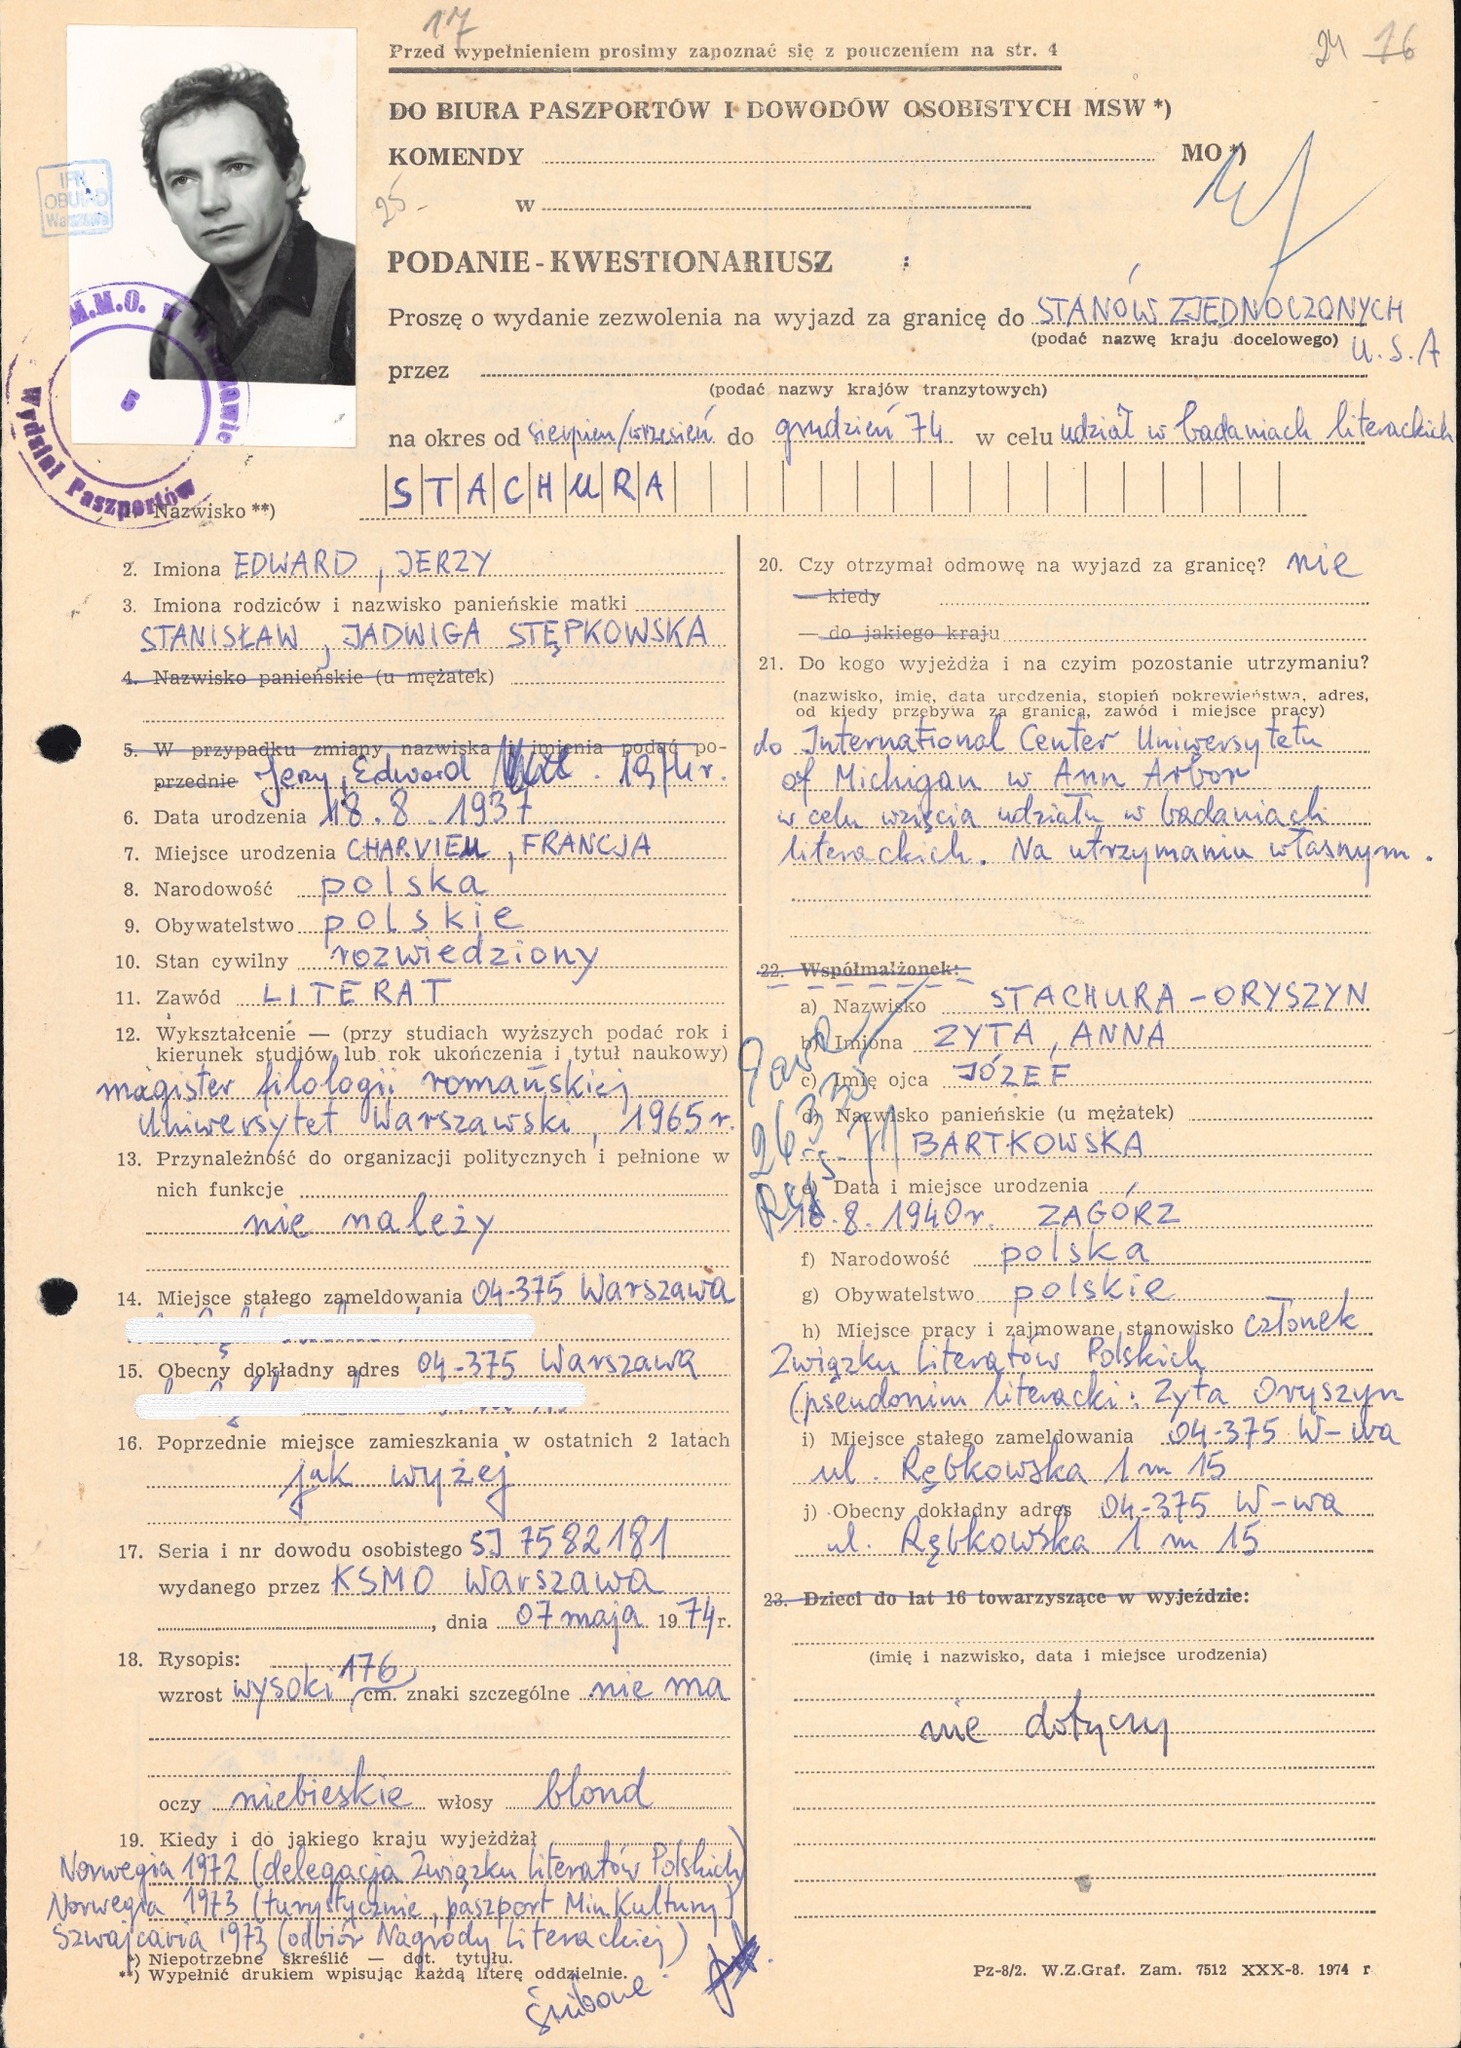 17
Przed wypełnieniem prosimy zapoznać się z pouczeniem na str. 4
24 16
DO BIURA PASZPORTÓW I DOWODÓW OSOBISTYCH MSW *)
KOMENDY MO *)
25-
w
IPN
OBUiAD
Warszawa
PODANIE - KWESTIONARIUSZ
Proszę o wydanie zezwolenia na wyjazd za granicę do STANÓW ZJEDNOCZONYCH
(podać nazwę kraju docelowego) U.S.A
przez
(podać nazwy krajów tranzytowych)
na okres od sierpień/wrzesień do grudzień 74 w celu udział w badaniach literackich
M.M.O. w Warszawie
5
Wydział Paszportów
1. Nazwisko **) STACHURA
2. Imiona EDWARD, JERZY
3. Imiona rodziców i nazwisko panieńskie matki
STANISŁAW, JADWIGA STĘPKOWSKA
4. Nazwisko panieńskie (u mężatek)
5. W przypadku zmiany nazwiska i imienia podać po-
przednie Jerzy, Edward 1974 r.
6. Data urodzenia 18.8.1937
7. Miejsce urodzenia CHARVIEU, FRANCJA
8. Narodowość polska
9. Obywatelstwo polskie
10. Stan cywilny rozwiedziony
11. Zawód LITERAT
12. Wykształcenie — (przy studiach wyższych podać rok i
kierunek studiów lub rok ukończenia i tytuł naukowy)
magister filologii romańskiej
Uniwersytet Warszawski, 1965 r.
13. Przynależność do organizacji politycznych i pełnione w
nich funkcje
nie należy
14. Miejsce stałego zameldowania 04-375 Warszawa
15. Obecny dokładny adres 04-375 Warszawa
16. Poprzednie miejsce zamieszkania w ostatnich 2 latach
jak wyżej
17. Seria i nr dowodu osobistego SJ 7582181
wydanego przez KSMO Warszawa
, dnia 07 maja 1974 r.
18. Rysopis: 176
wzrost wysoki, cm. znaki szczególne nie ma
oczy niebieskie włosy blond
19. Kiedy i do jakiego kraju wyjeżdżał
Norwegia 1972 (delegacja Związku Literatów Polskich)
Norwegia 1973 (turystycznie, paszport Min Kultury)
Szwajcaria 1973 (odbiór Nagrody Literackiej)
*) Niepotrzebne skreślić — dot. tytułu.
**) Wypełnić drukiem wpisując każdą literę oddzielnie.
20. Czy otrzymał odmowę na wyjazd za granicę? nie
— kiedy
— do jakiego kraju
21. Do kogo wyjeżdża i na czyim pozostanie utrzymaniu?
(nazwisko, imię, data urodzenia, stopień pokrewieństwa, adres,
od kiedy przebywa za granicą, zawód i miejsce pracy)
do International Center Uniwersytetu
of Michigan w Ann Arbor
w celu wzięcia udziału w badaniach
literackich. Na utrzymaniu własnym.
22. Współmałżonek:
a) Nazwisko STACHURA-ORYSZYN
b) Imiona ZYTA, ANNA
c) Imię ojca JÓZEF
d) Nazwisko panieńskie (u mężatek)
BARTKOWSKA
e) Data i miejsce urodzenia
16.8.1940 r. ZAGÓRZ
f) Narodowość polska
g) Obywatelstwo polskie
h) Miejsce pracy i zajmowane stanowisko członek
Związku Literatów Polskich
(pseudonim literacki: Zyta Oryszyn
i) Miejsce stałego zameldowania 04-375 W-wa
ul. Rębkowska 1 m 15
j) Obecny dokładny adres 04-375 W-wa
ul. Rębkowska 1 m 15
23. Dzieci do lat 16 towarzyszące w wyjeździe:
(imię i nazwisko, data i miejsce urodzenia)
nie dotyczy
Pz-8/2. W.Z.Graf. Zam. 7512 XXX-8. 1974 r